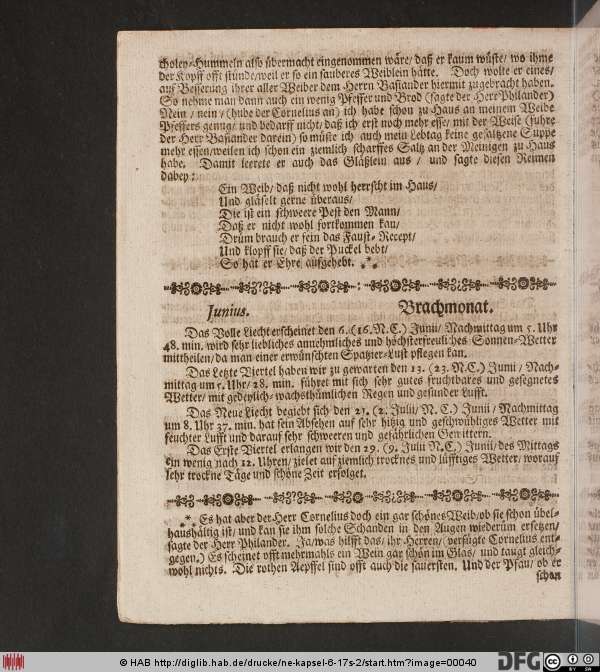 choley-Hummeln also übermacht eingenommen wäre/ daß er kaum wüste/ wo ihme
der Kopff offt stünde/weil er so ein sauberes Weiblein hätte. Doch wolte er eines/
auf Besserung ihrer aller Weiber dem Herrn Basiander hiermit zugebracht haben.
So nehme man dann auch ein wenig Pfeffer und Brod (sagte der Herr Philander)
Nein / nein / (hube der Cornelius an) ich habe schon zu Haus an meinem Weibe
Pfeffers genug/ und bedarff nicht/ daß ich erst noch mehr esse/ mit der Weise (fuhre
der Herr Basiander darein) so müste ich auch mein Lebtag keine gesaltzene Suppe
mehr essen/weilen ich schon ein ziemlich scharffes Saltz an der Meinigen zu Haus
habe. Damit leerete er auch das Gläßlein aus / und sagte diesen Reimen
dabey:
Ein Weib/ daß nicht wohl herrscht im Haus/
Und gläselt gerne überaus/
Die ist ein schweere Pest den Mann/
Daß er nicht wohl fortkommen kan/
Drum brauch er fein das Faust-Recept/
Und klopff sie/ daß der Puckel bebt/
So hat er Ehre aufgehebt. .*.
Junius. Brachmonat.
Das Volle Liecht erscheinet den 6. (16. N. C.) Junii/ Nachmittag um 5. Uhr
48. min. wird sehr liebliches annehmliches und höchsterfreuliches Sonnen-Wetter
mittheilen/ da man einer erwünschten Spatzier-Lust pflegen kan.
Das Letzte Viertel haben wir zu gewarten den 13. (23. N. C.) Junii / Nach-
mittag um 5. Uhr/ 28. min. führet mit sich sehr gutes fruchtbares und gesegnetes
Wetter/ mit gedeylich-wachsthümlichen Regen und gesunder Lufft.
Das Neue Liecht begiebt sich den 21. (2. Julii/ N. C.) Junii/ Nachmittag
um 8. Uhr 37. min. hat sein Absehen auf sehr hitzig und geschwühliges Wetter mit
feuchter Lufft und darauf sehr schweeren und gefährlichen Gewittern.
Das Erste Viertel erlangen wir den 29. (9. Julii N. C.) Junii/ des Mittags
ein wenig nach 12. Uhren/ zielet auf ziemlich trocknes und lüfftiges Wetter/ worauf
sehr trockne Täge und schöne Zeit erfolget.
.*. Es hat aber der Herr Cornelius doch ein gar schönes Weib/ ob sie schon übel-
haushältig ist/ und kan sie ihm solche Schanden in den Augen wiederum ersetzen/
sagte der Herr Philander. Ja/ was hilfft das/ ihr Herren/ (versügte Cornelius ent-
gegen.) Es scheinet offt mehrmahls ein Wein gar schön im Glas/ und taugt gleich-
wohl nichts. Die rothen Aepffel sind offt auch die sauersten. Und der Pfau/ ob er
schon
© HAB http://diglib.hab.de/drucke/ne-kapsel-6-17s-2/start.htm?image=00040
DFG
cc BY SA